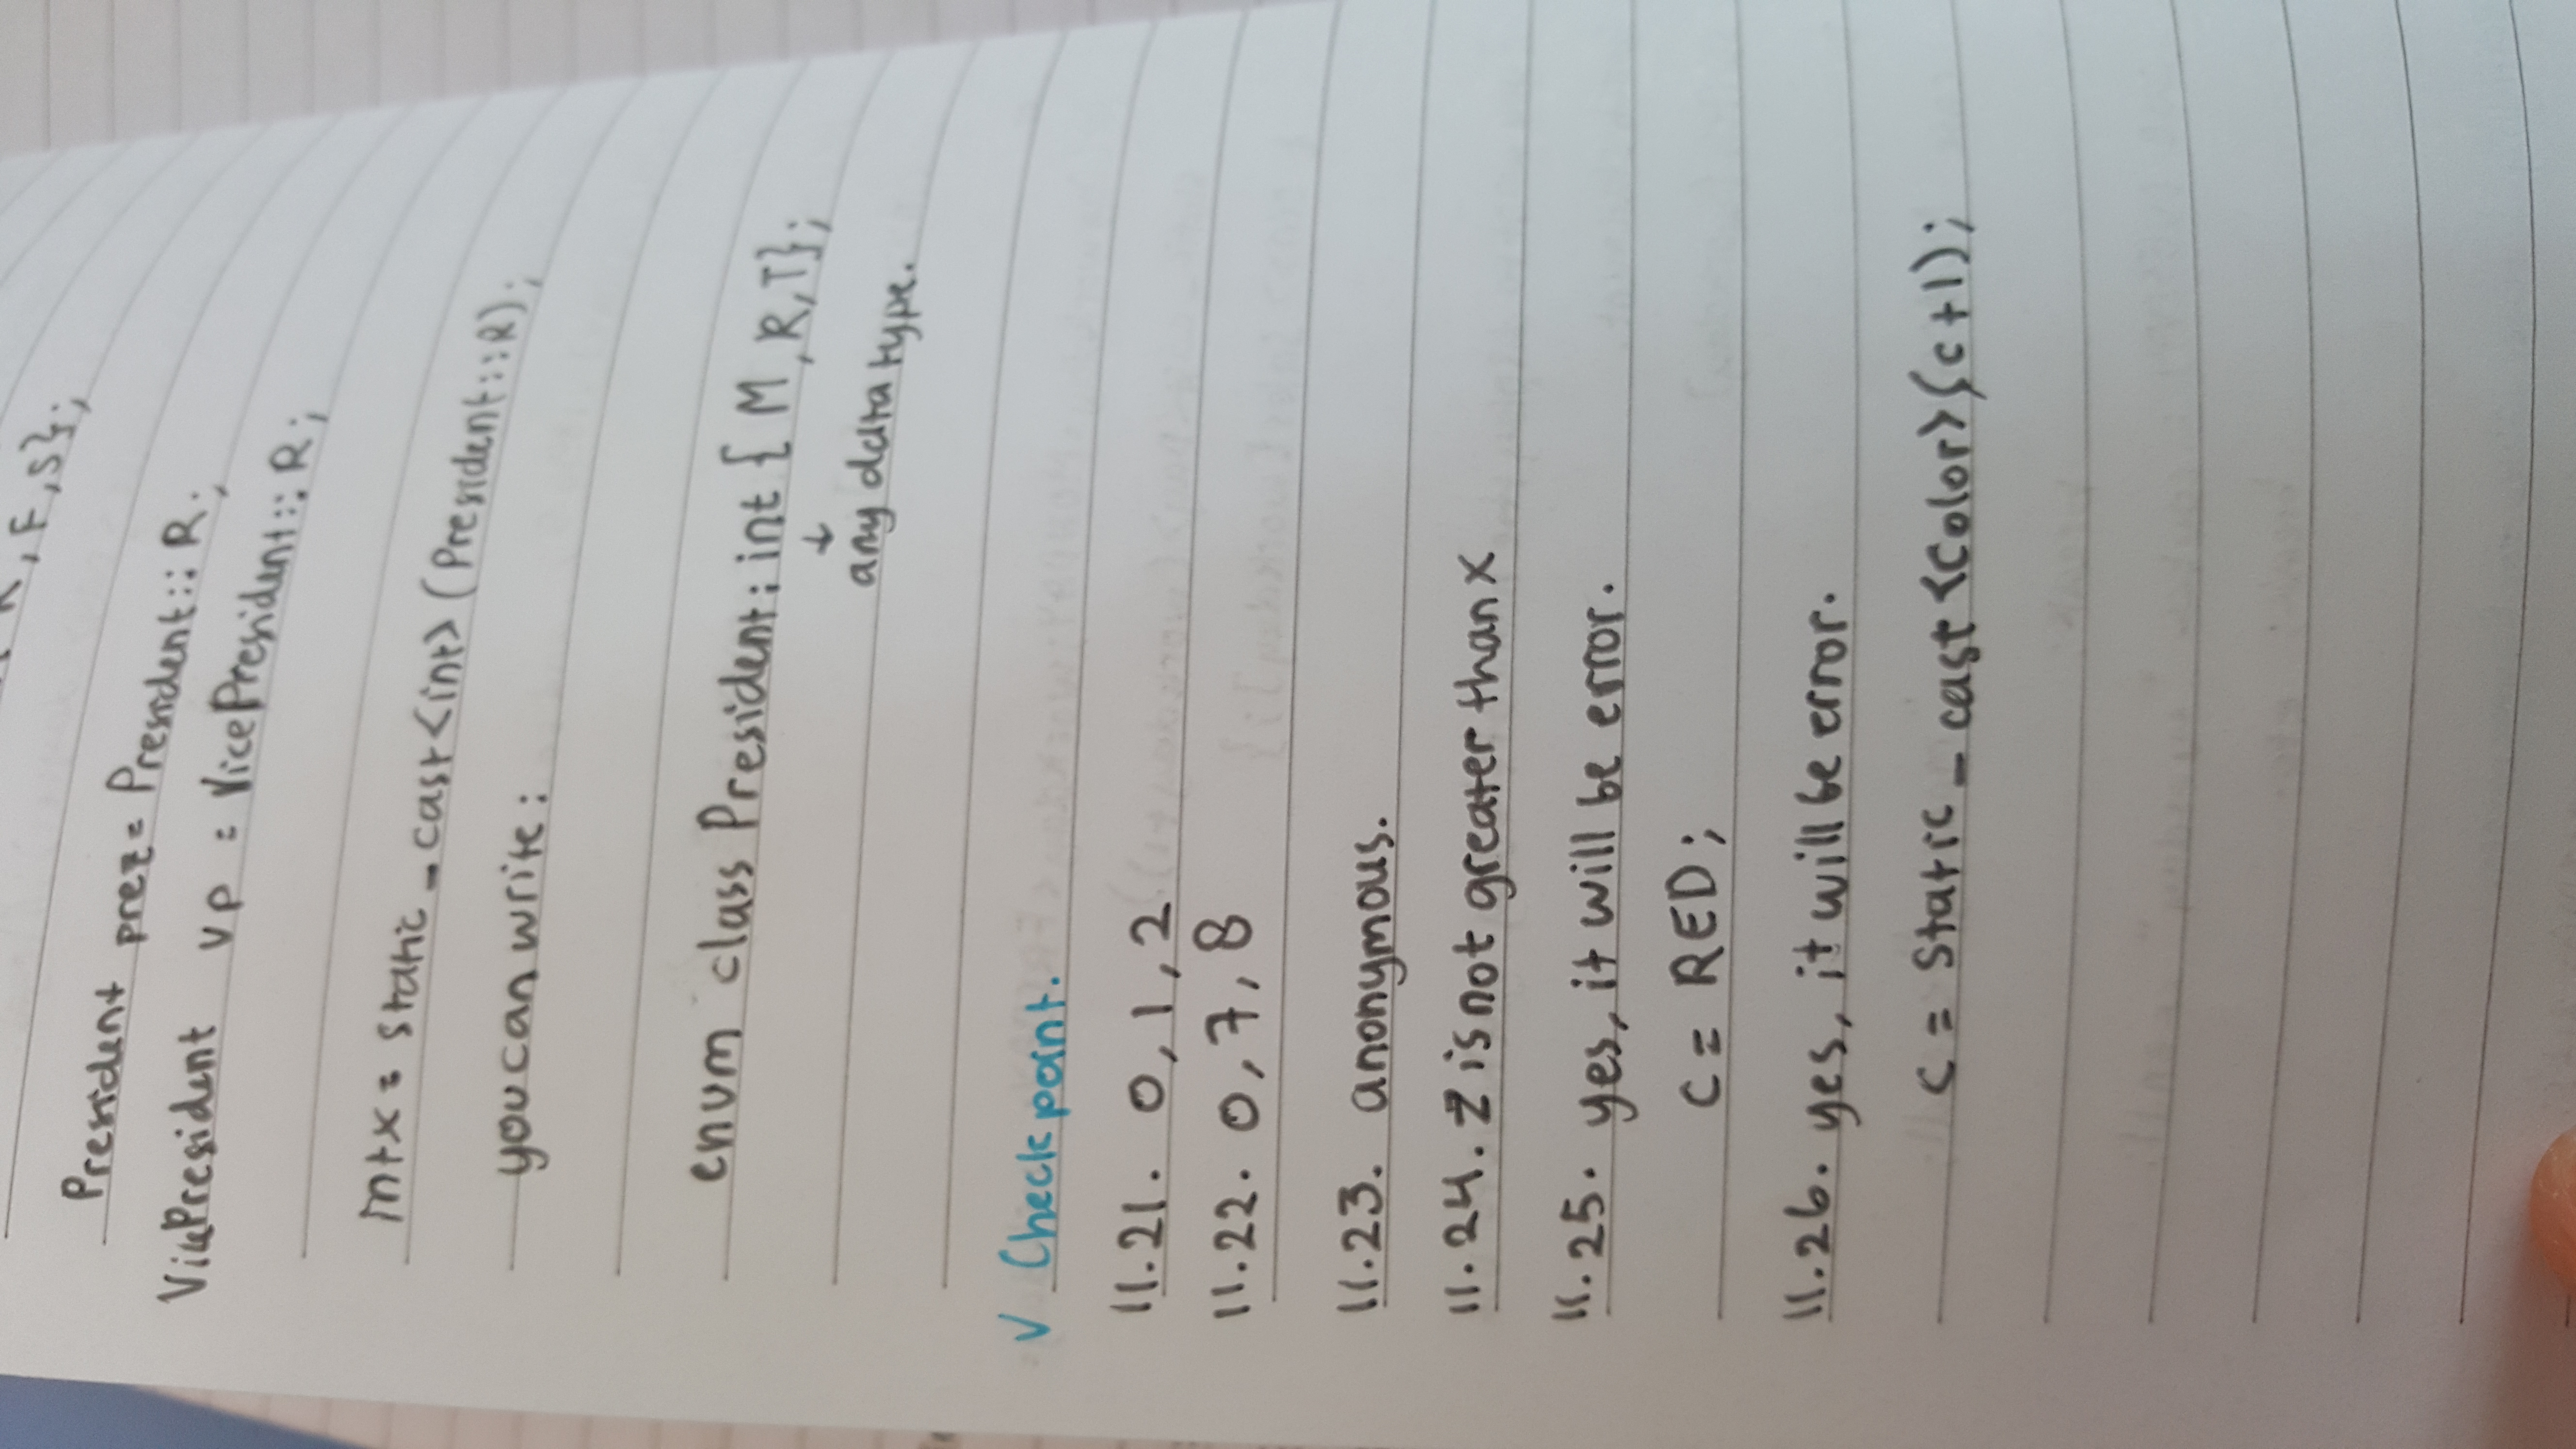 R, F, S};
President prez = President::R;
VicePresident vp = VicePresident::R;
int x = static_cast<int>(President::R);
you can write:
enum class President: int { M, R, T};
↓
any data type.
√ Checkpoint.
11.21. 0, 1, 2
11.22. 0, 7, 8
11.23. anonymous.
11.24. Z is not greater than X
11.25. yes, it will be error.
C = RED;
11.26. yes, it will be error.
C = Static_cast<Color>(c+1);